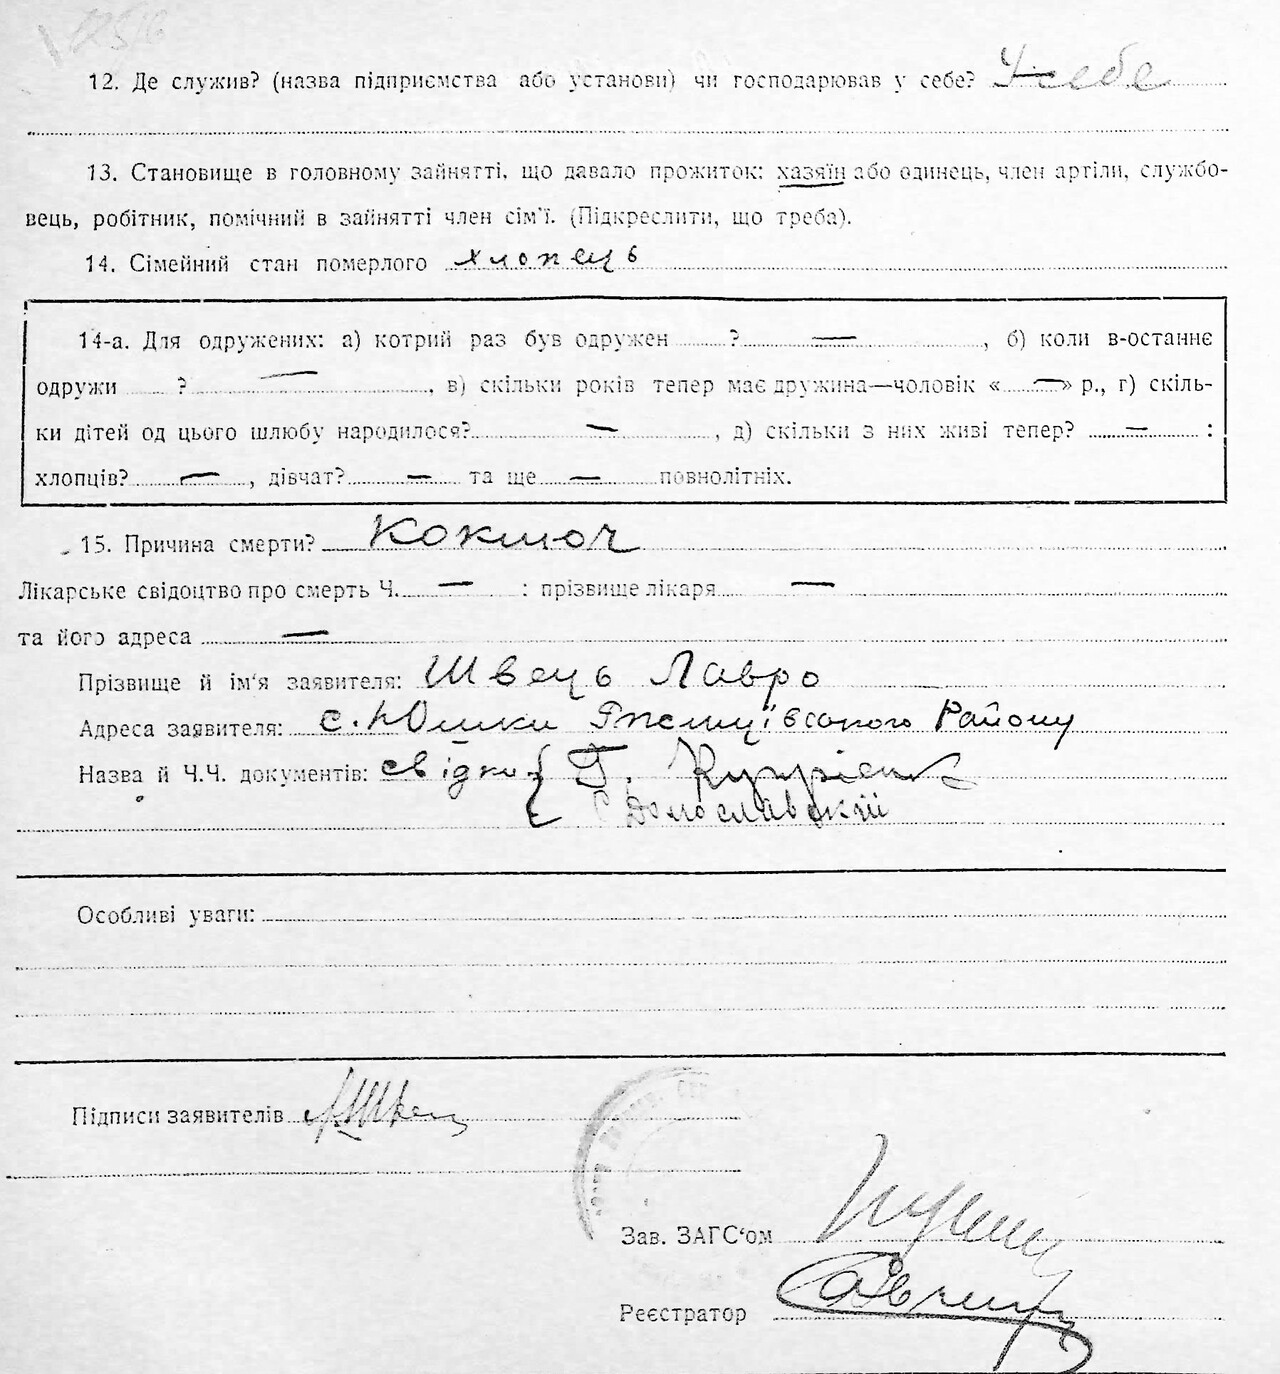 12. Де служив? (назва підприємства або установи) чи господарював у себе? У себе
13. Становище в головному зайнятті, що давало прожиток: хазяїн або одинець, член артіли, службо-
вець, робітник, помічний в зайнятті член сім'ї. (Підкреслити, що треба).
14. Сімейний стан померлого хлопець
14-а. Для одружених: а) котрий раз був одружен ? — , б) коли в-останнє
одружи ? — , в) скільки років тепер має дружина—чоловік «—» р., г) скіль-
ки дітей од цього шлюбу народилося? — , д) скільки з них живі тепер? — :
хлопців? — , дівчат? — та ще — повнолітніх.
15. Причина смерти? Коклюш
Лікарське свідоцтво про смерть Ч. — : прізвище лікаря —
та його адреса —
Прізвище й ім'я заявителя: Швець Лавро
Адреса заявителя: с. Юшки Ржищівського Району
Назва й Ч.Ч. документів: свідки {
Особливі уваги:
Підписи заявителів
Зав. ЗАГС'ом
Реєстратор